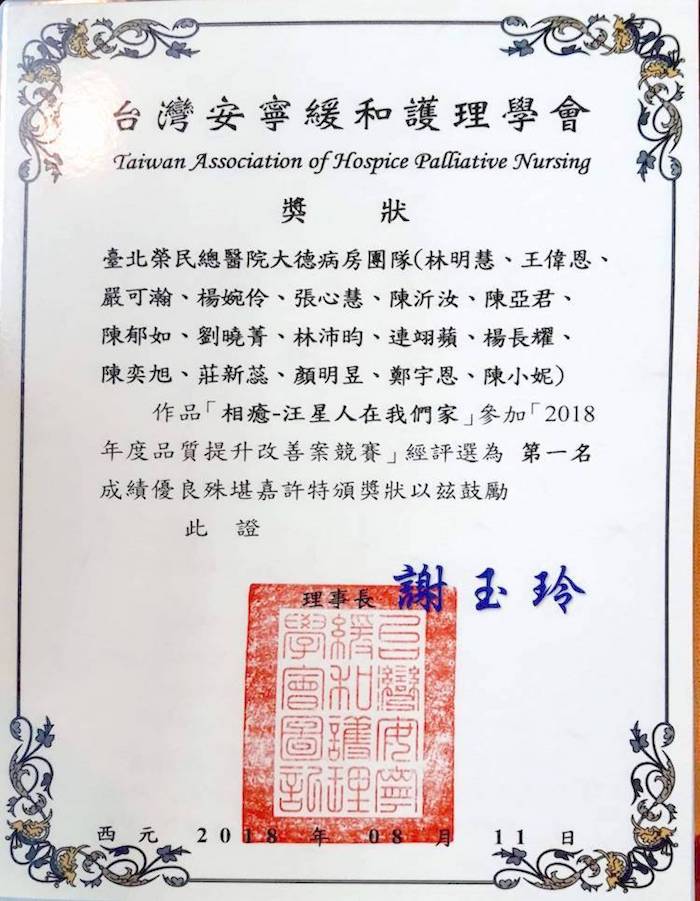 台灣安寧緩和護理學會
Taiwan Association of Hospice Palliative Nursing
獎 狀
臺北榮民總醫院大德病房團隊(林明慧、王偉恩、
嚴可瀚、楊婉伶、張心慧、陳沂汝、陳亞君、
陳郁如、劉曉菁、林沛昀、連翊蘋、楊長耀、
陳奕旭、莊新蕊、顏明昱、鄭宇恩、陳小妮)
作品「相癒-汪星人在我們家」參加「2018
年度品質提升改善案競賽」經評選為 第一名
成績優良殊堪嘉許特頒獎狀以茲鼓勵
此 證
理事長 謝玉玲
台灣安寧
緩和護理
學會圖記
西元 2018 年 08 月 11 日